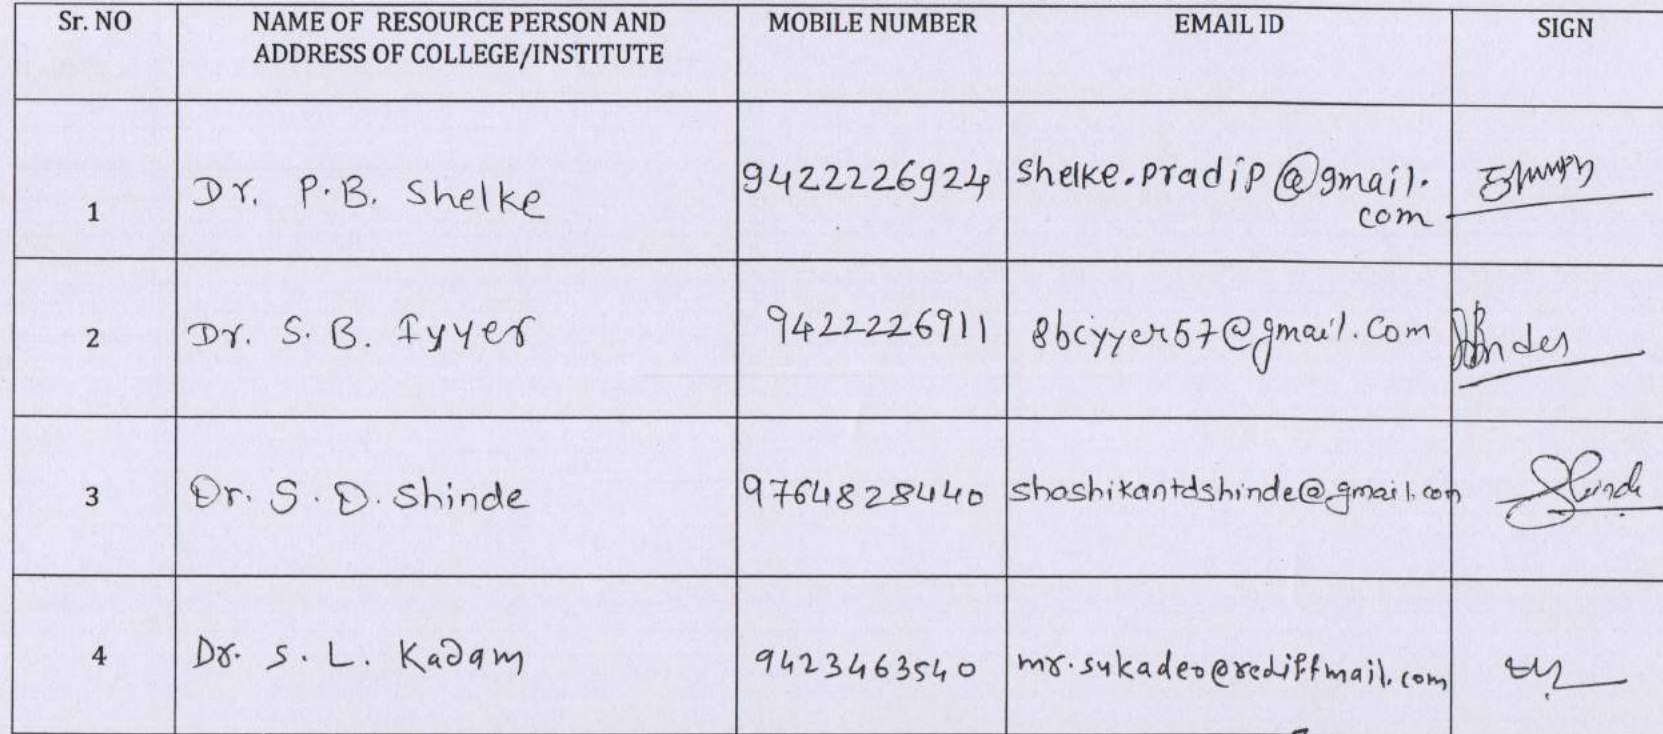 Sr. NO NAME OF RESOURCE PERSON AND ADDRESS OF COLLEGE/INSTITUTE MOBILE NUMBER EMAIL ID SIGN
1 Dr. P.B. Shelke 9422226924 shelke.pradip@gmail.
com
2 Dr. S.B. Iyyer 9422226911 @gmail.com
3 Dr. S.D. Shinde 9764828440 shashikantdshinde@gmail.com Shinde
4 Dr. S.L. Kadam 9423463540 mr.sukadeo@rediffmail.com